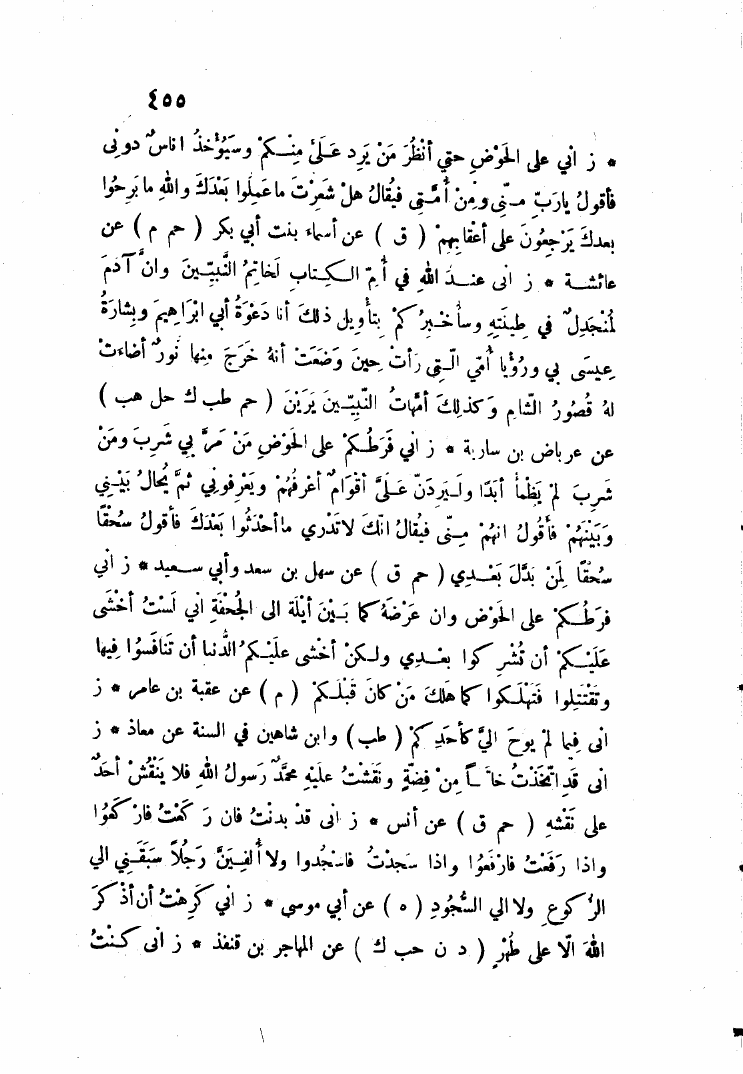 ٤٥٥
* ز اني على الحَوْضِ حتي أنْظُرَ مَنْ يَرِد عَلَيَّ مِنْكُمْ وسَيُؤْخَذُ اناسٌ دونِى
فأقولُ يارَبّ مِنّى ومِنْ أُمَّتِى فيُقالُ هلْ شَعرْتَ ماعَمِلوا بَعْدَكَ واللهِ ما بَرِحُوا
بعدكَ يَرْجِعُونَ على أعْقابِهِمْ ( ق ) عن أسماء بنت أبي بكر ( حم م ) عن
عائشة * ز انى عندَ اللهِ في أُمّ الكِتابِ لَخاتِمُ النَّبِيّينَ وانَّ آدَمَ
لَمُنْجَدِلٌ في طِينَتِهِ وسأُخْبِرُكُمْ بِتأويل ذلكَ أنا دَعْوَةُ أبي ابْرَاهِيمَ وبِشارَةُ
عِيسَى بي ورُؤْيا أُمّي الّتِى رَأتْ حِينَ وَضَعَتْ أنهُ خَرَجَ مِنها نُورٌ أضاءتْ
لهُ قُصُورُ الشّامِ وَكذلِكَ أُمَّهاتُ النَّبِيّينَ يَرَيْنَ ( حم طب ك حل هب )
عن عرباض بن سارية * ز اني فَرَطُكُمْ على الحَوْضِ مَنْ مَرَّ بي شَرِبَ ومَنْ
شَرِبَ لمْ يَظْمأْ أبَدًا ولَيَرِدَنّ عَلَىَّ أقْوَامٌ أعْرِفُهُمْ ويَعْرِفوني ثمَّ يُحالُ بَيْنِي
وَبَيْنَهُمْ فأَقُولُ انهُمْ مِنّى فيُقالُ انّكَ لاتَدْري ماأحْدَثُوا بَعْدَكَ فأقولُ سُحْقًا
سُحْقًا لِمَنْ بَدَّلَ بَعْدِي ( حم ق ) عن سهل بن سعد وأبي سعيد * ز أني
فرَطُكُمْ على الحَوْض وان عَرْضَهُ كما بَيْنَ أيْلَةَ الى الجُحْفَةِ اني لَسْتُ أخْشَى
عَلَيْكُمْ أن تُشْرِكوا بعْدِي ولكنْ أخْشى علَيْكُم الدُّنيا أن تَنَافَسُوا فِيها
وتَقْتَتِلوا فتَهْلَكوا كما هَلكَ مَنْ كانَ قَبْلَكُمْ ( م ) عن عقبة بن عامر * ز
انى فِيما لمْ يُوحَ اليَّ كأحَدِكُمْ ( طب ) وابن شاهين في السنة عن معاذ * ز
انى قدِ اتّخَذْتُ خاتَماً مِنْ فِضّةٍ ونَقَشْتُ علَيْهِ محَمَّدٌ رَسولُ اللهِ فلا يَنْقُشْ أحَدٌ
على نَقْشِهِ ( حم ق ) عن أنس * ز انى قدْ بدنْتُ فان رَكَعْتُ فارْكَعُوا
واذا رَفَعْتُ فارْفَعُوا واذا سَجَدْتُ فاسْجُدوا ولا أُلْفِيَنَّ رَجُلاً سبَقَنِي الي
الرُّكوعِ ولا الي السُّجُودِ ( ه ) عن أبي موسى * ز اني كَرِهْتُ أن أذْكُرَ
اللهَ الّا على طُهْرٍ ( د ن حب ك ) عن المهاجر بن قنفذ * ز انى كنْتُ